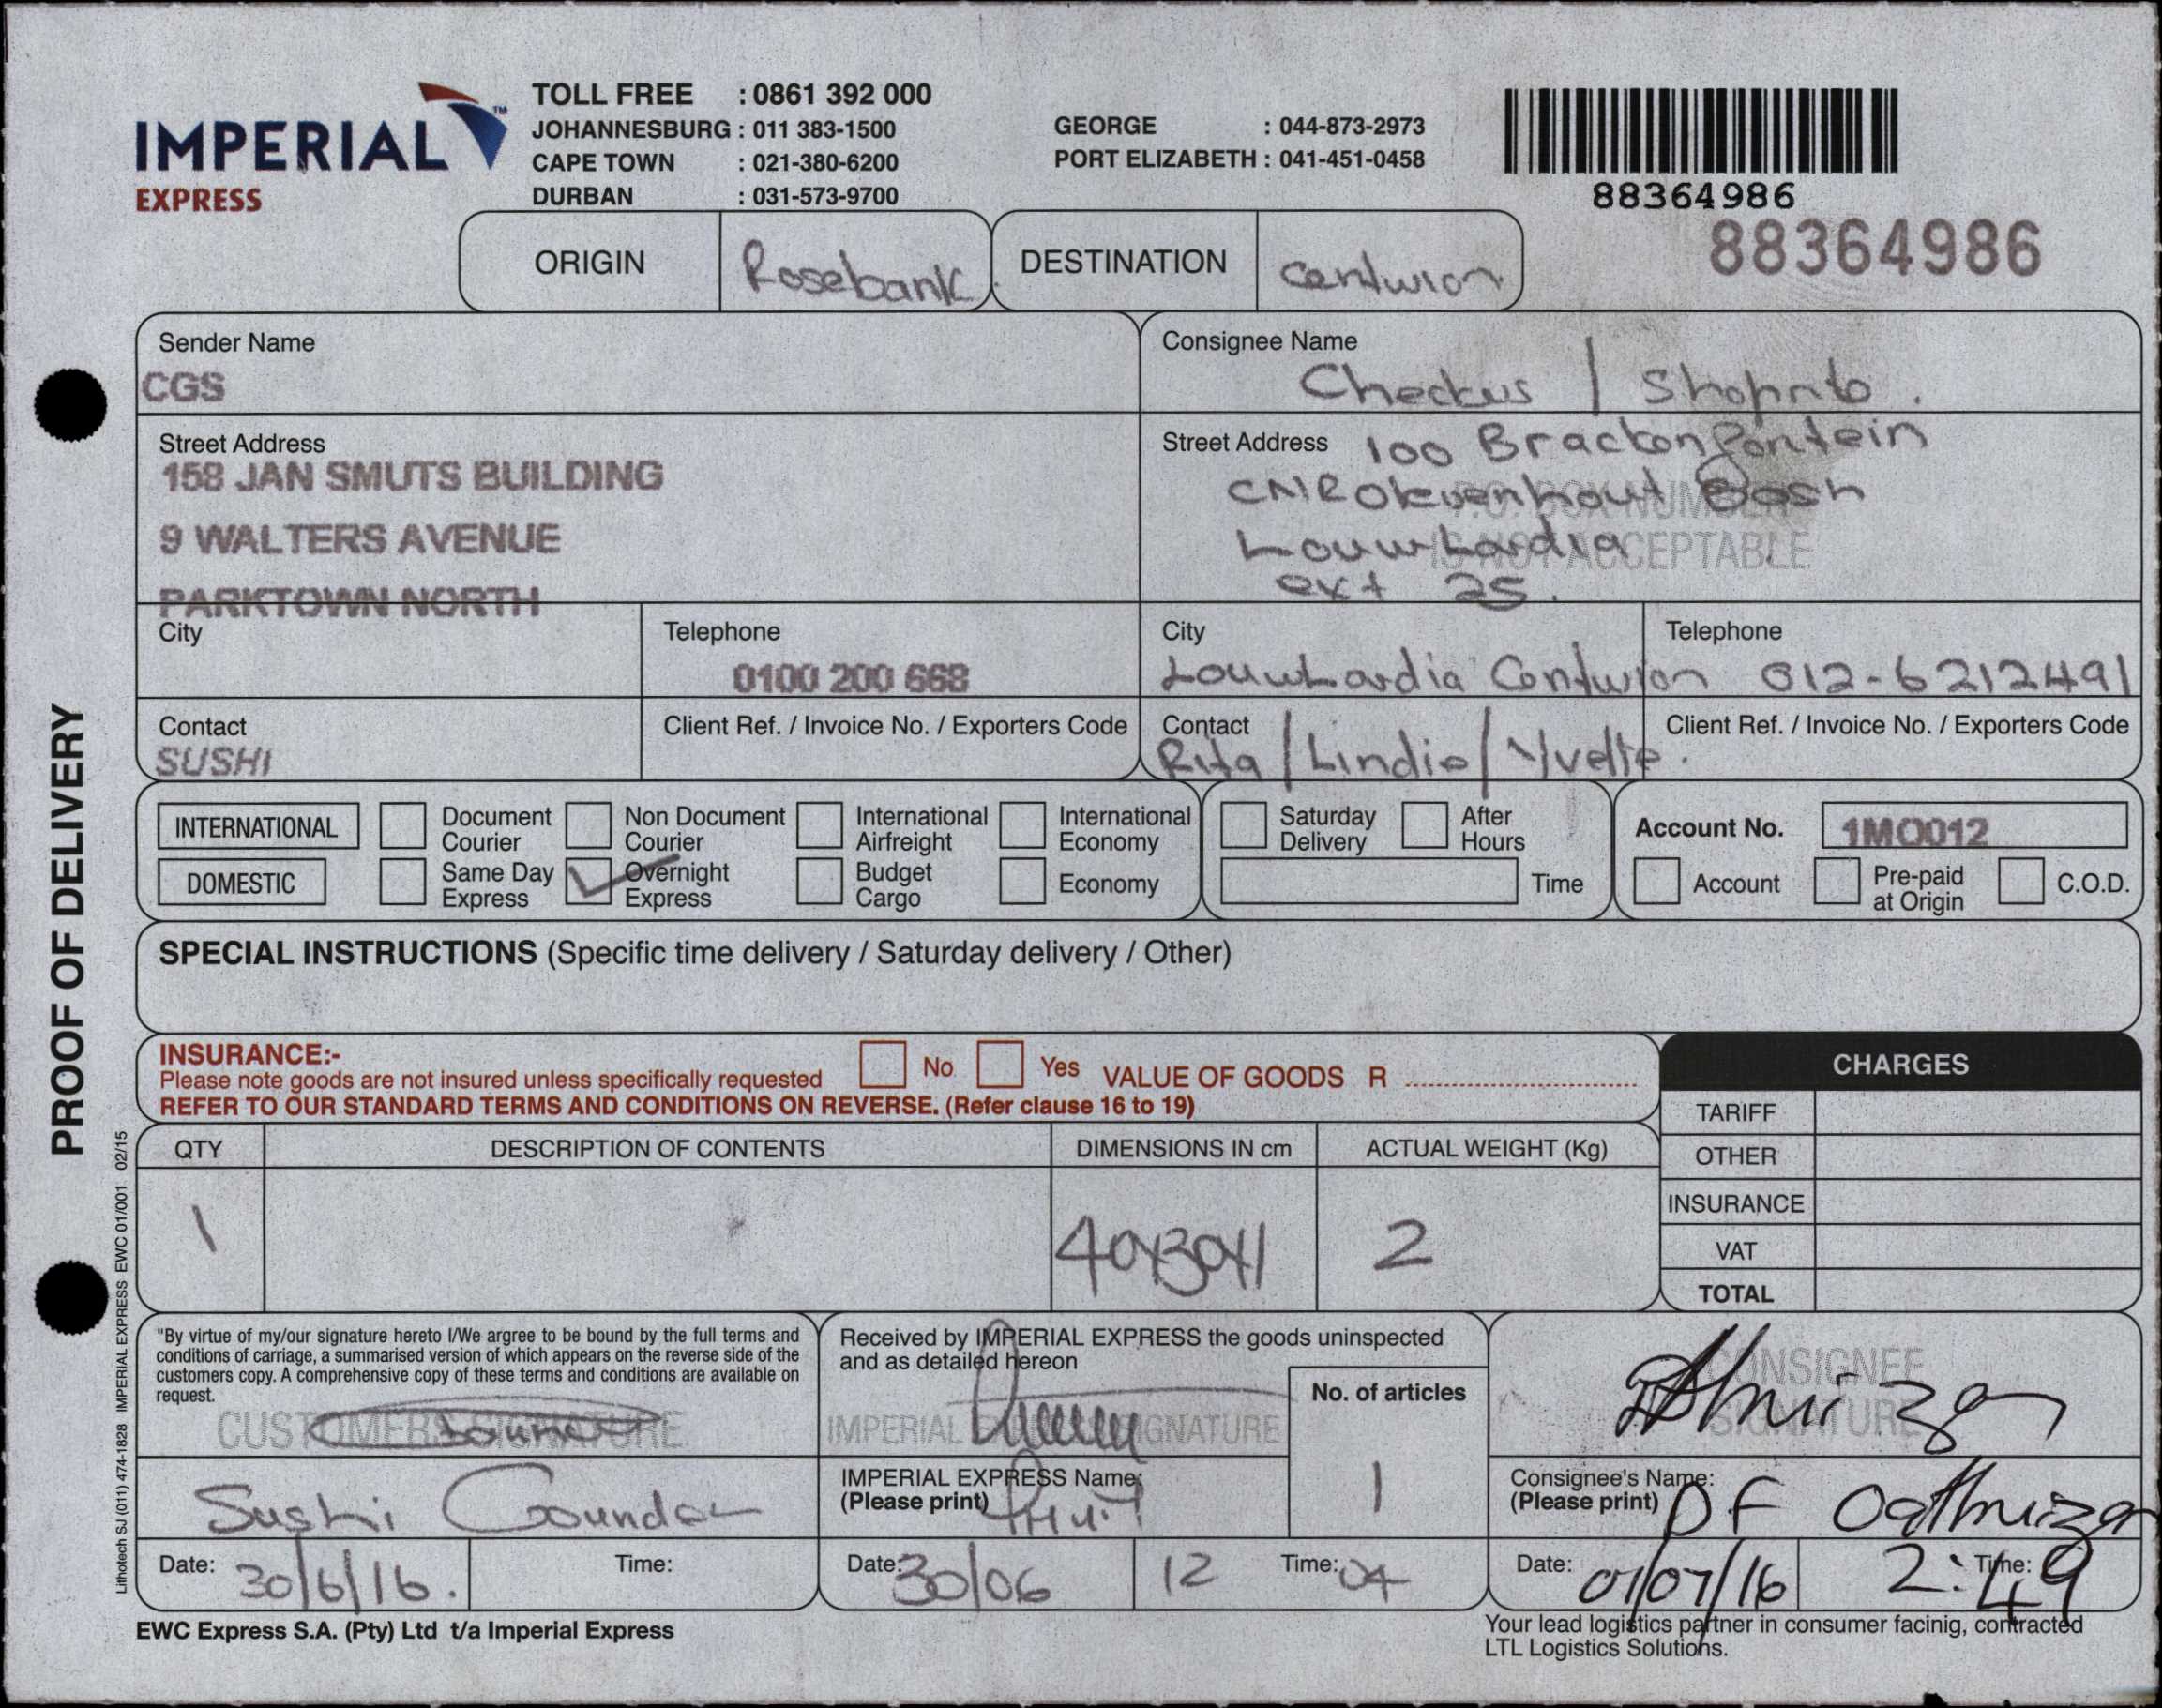 IMPERIAL™
EXPRESS
TOLL FREE : 0861 392 000
JOHANNESBURG : 011 383-1500
CAPE TOWN : 021-380-6200
DURBAN : 031-573-9700
GEORGE : 044-873-2973
PORT ELIZABETH : 041-451-0458
88364986
88364986
ORIGIN Rosebank DESTINATION Centurion
Sender Name
CGS
Consignee Name
Checkers / Shoprite.
Street Address
158 JAN SMUTS BUILDING
9 WALTERS AVENUE
PARKTOWN NORTH
Street Address 100 Brackenfontein
CNR Okvenhout Bosh
Louwlardia
ext 25.
P.O. BOX NUMBER
IS NOT ACCEPTABLE
City
Telephone
0100 200 668
City
Louwlardia Centurion
Telephone
012-6212491
Contact
SUSHI
Client Ref. / Invoice No. / Exporters Code
Contact
Rita / Lindie / Yvette.
Client Ref. / Invoice No. / Exporters Code
INTERNATIONAL
Document Courier
Non Document Courier
International Airfreight
International Economy
DOMESTIC
Same Day Express
Overnight Express
Budget Cargo
Economy
Saturday Delivery
After Hours
Time
Account No. 1MO012
Account
Pre-paid at Origin
C.O.D.
SPECIAL INSTRUCTIONS (Specific time delivery / Saturday delivery / Other)
INSURANCE:-
Please note goods are not insured unless specifically requested
No Yes VALUE OF GOODS R
REFER TO OUR STANDARD TERMS AND CONDITIONS ON REVERSE. (Refer clause 16 to 19)
CHARGES
TARIFF
OTHER
INSURANCE
VAT
TOTAL
QTY DESCRIPTION OF CONTENTS DIMENSIONS IN cm ACTUAL WEIGHT (Kg)
1 40x30x1 2
"By virtue of my/our signature hereto I/We argree to be bound by the full terms and
conditions of carriage, a summarised version of which appears on the reverse side of the
customers copy. A comprehensive copy of these terms and conditions are available on
request.
CUSTOMERS SIGNATURE
Sushi Gounder
Date: 30/6/16. Time:
Received by IMPERIAL EXPRESS the goods uninspected
and as detailed hereon
IMPERIAL EXPRESS SIGNATURE
No. of articles
1
IMPERIAL EXPRESS Name:
(Please print)
Date: 30/06 12 Time: 04
CONSIGNEE
SIGNATURE
Consignee's Name:
(Please print) DF Oosthuizen
Date: 01/07/16 2:49 Time:
EWC Express S.A. (Pty) Ltd t/a Imperial Express
Your lead logistics partner in consumer facinig, contracted
LTL Logistics Solutions.
PROOF OF DELIVERY
Lithotech SJ (011) 474-1828 IMPERIAL EXPRESS EWC 01/001 02/15